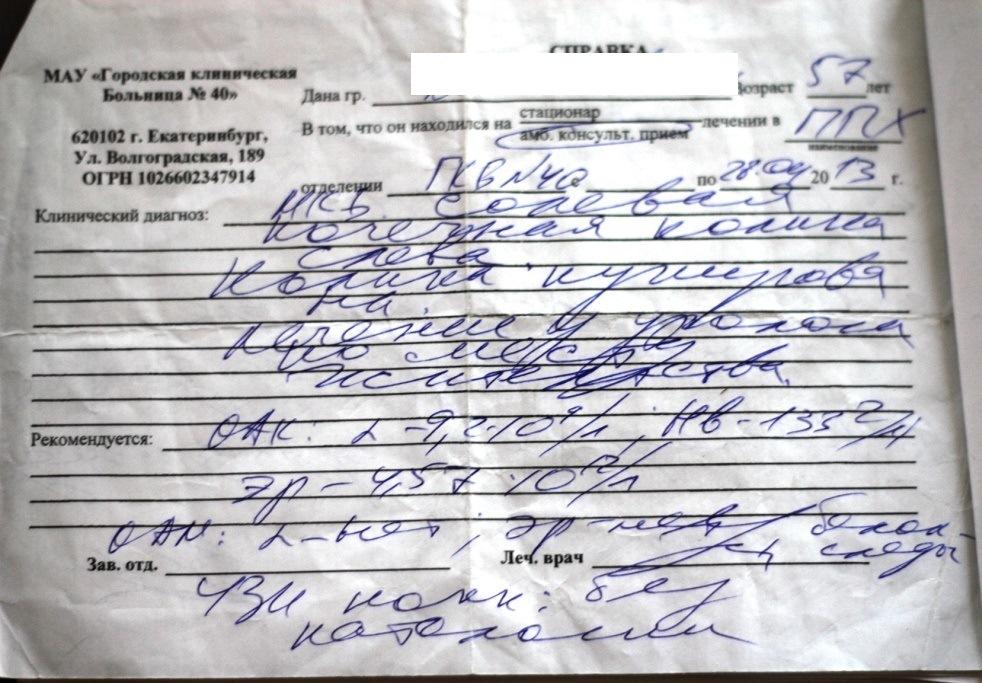 СПРАВКА
МАУ «Городская клиническая
Больница № 40»
620102 г. Екатеринбург,
Ул. Волгоградская, 189
ОГРН 1026602347914
Дана гр. Возраст 57 лет
В том, что он находился на стационар
амб. консульт. прием лечении в ППХ
наименование
отделении ГКБ №40 с по 28.04 2013 г.
Клинический диагноз: МКБ. Солевая
почечная колика
слева.
Колика купирована
на
лечение у уролога
по месту
жительства
Рекомендуется: ОАК: L-9,2·10⁹/л; Hb-133 г/л
эр-4,57·10¹²/л
ОАМ: L-нет; эр-нет белок-
следы
Зав. отд. Леч. врач
УЗИ почек: без
патологии